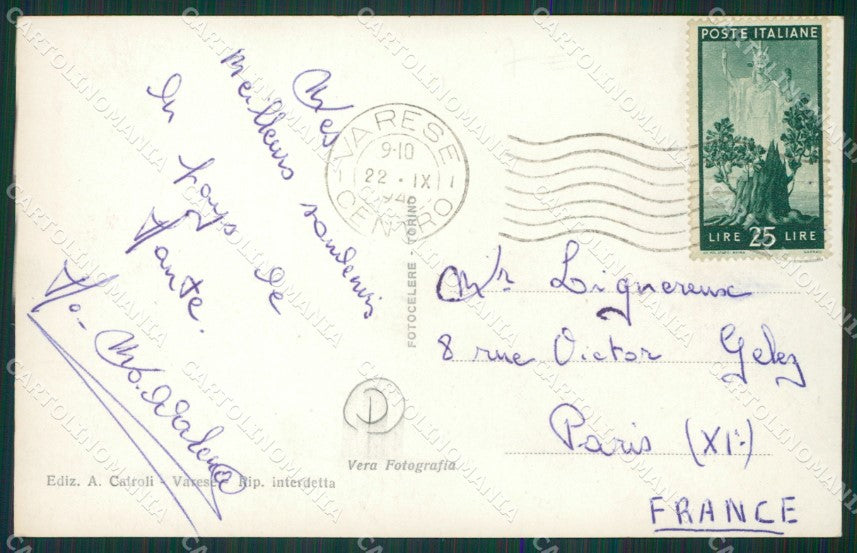 Mes
Meilleurs souvenirs
du pays de
Dante.
VARESE
CENTRO
9-10
22 · IX
POSTE ITALIANE
LIRE 25 LIRE
FOTOCELERE - TORINO
Mr Liquereux
8 rue Victor Gelez
Paris (XIe)
FRANCE
D
Vera Fotografia
Ediz. A. Catroli - Varese - Rip. interdetta
CARTOLINOMANIA